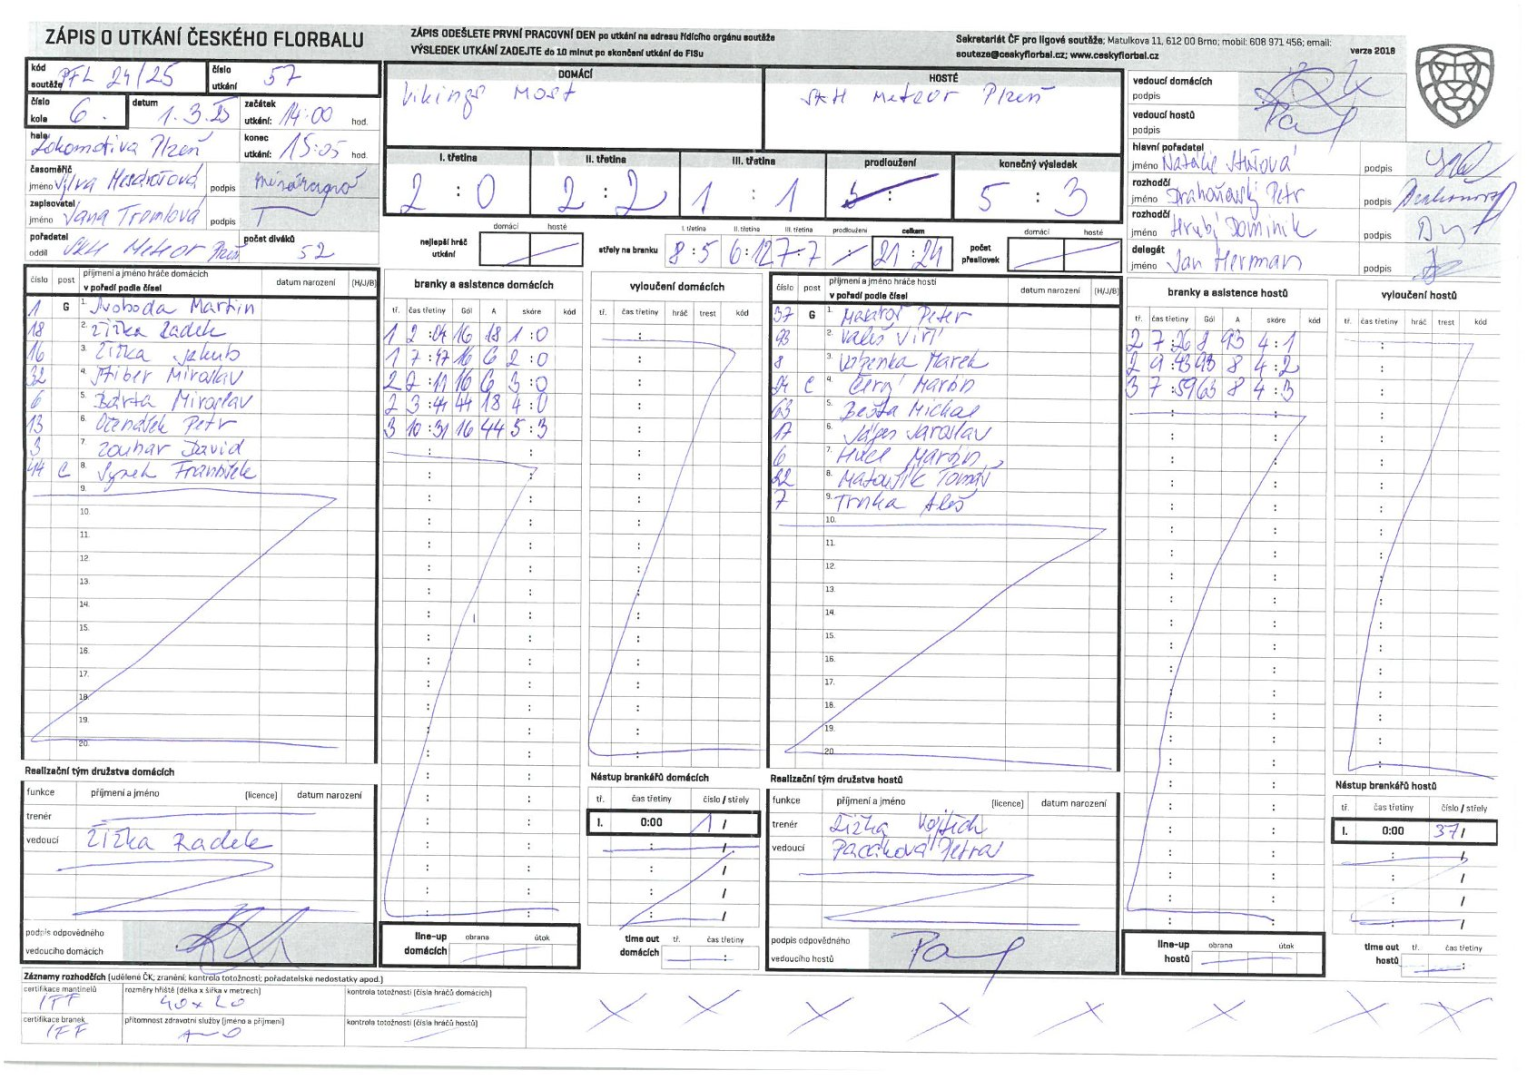 ZÁPIS O UTKÁNÍ ČESKÉHO FLORBALU
ZÁPIS ODEŠLETE PRVNÍ PRACOVNÍ DEN po utkání na adresu řídícího orgánu soutěže
VÝSLEDEK UTKÁNÍ ZADEJTE do 10 minut po skončení utkání do FISu
Sekretariát ČF pro ligové soutěže; Matulkova 11, 612 00 Brno; mobil: 608 971 456; email:
souteze@ceskyflorbal.cz; www.ceskyflorbal.cz
verze 2018
kód soutěže PFL 24/25 číslo utkání 57
číslo kola 6. datum 1.3.25 začátek utkání: 14:00 hod.
hala Lokomotiva Plzeň konec utkání: 15:05 hod.
časoměřič
jméno podpis
zapisovatel
jméno Jana podpis
pořadatel
oddíl SKH Meteor Plzeň počet diváků 52
DOMÁCÍ HOSTÉ
Vikings Most SKH Meteor Plzeň
I. třetina II. třetina III. třetina prodloužení konečný výsledek
2 : 0 2 : 2 1 : 1 : 5 : 3
nejlepší hráč utkání domácí hosté
střely na branku I. třetina II. třetina III. třetina prodloužení celkem
8 : 5 6 : 12 7 : 7 21 : 24
počet přesilovek domácí hosté
vedoucí domácích
podpis
vedoucí hostů
podpis
hlavní pořadatel
jméno Natálie podpis
rozhodčí
jméno Petr podpis
rozhodčí
jméno Hrubý Dominik podpis
delegát
jméno Jan Herman podpis
číslo post příjmení a jméno hráče domácích v pořadí podle čísel datum narození (H/J/B)
1 G 1. Svoboda Martin
18 2. Žižka Radek
16 3. Žižka Jakub
32 4. Stiber Miroslav
6 5. Bárta Miroslav
13 6. Petr
3 7. Zoubar David
44 C 8. František
9.
10.
11.
12.
13.
14.
15.
16.
17.
18.
19.
20.
branky a asistence domácích
tř. čas třetiny Gól A skóre kód
1 2:04 16 18 1:0
1 7:47 16 6 2:0
2 2:11 16 6 3:0
2 3:44 44 18 4:0
3 10:31 16 44 5:3
vyloučení domácích
tř. čas třetiny hráč trest kód
číslo post příjmení a jméno hráče hostí v pořadí podle čísel datum narození (H/J/B)
37 G 1. Petr
93 2. Valeš Jiří
8 3. Marek
94 C 4. Černý Martin
63 5. Michal
17 6. Jaroslav
6 7. Martin
22 8. Matoušík Tomáš
7 9. Trnka Aleš
10.
11.
12.
13.
14.
15.
16.
17.
18.
19.
20.
branky a asistence hostů
tř. čas třetiny Gól A skóre kód
2 7:26 8 93 4:1
2 9:43 93 8 4:2
3 7:59 63 8 4:3
vyloučení hostů
tř. čas třetiny hráč trest kód
Realizační tým družstva domácích
funkce příjmení a jméno (licence) datum narození
trenér
vedoucí Žižka Radek
podpis odpovědného
vedoucího domácích
Nástup brankářů domácích
tř. čas třetiny číslo / střely
I. 0:00 1 /
line-up domácích obrana útok
time out domácích tř. čas třetiny
Realizační tým družstva hostů
funkce příjmení a jméno (licence) datum narození
trenér Žižka Vojtěch
vedoucí Pacáková Petra
podpis odpovědného
vedoucího hostů
Nástup brankářů hostů
tř. čas třetiny číslo / střely
I. 0:00 37 /
line-up hostů obrana útok
time out hostů tř. čas třetiny
Záznamy rozhodčích (udělené ČK, zranění; kontrola totožnosti; pořadatelské nedostatky apod.)
certifikace mantinelů IFF rozměry hřiště (délka x šířka v metrech) 40x20 kontrola totožnosti (čísla hráčů domácích)
certifikace branek IFF přítomnost zdravotní služby (jméno a příjmení) kontrola totožnosti (čísla hráčů hostů)